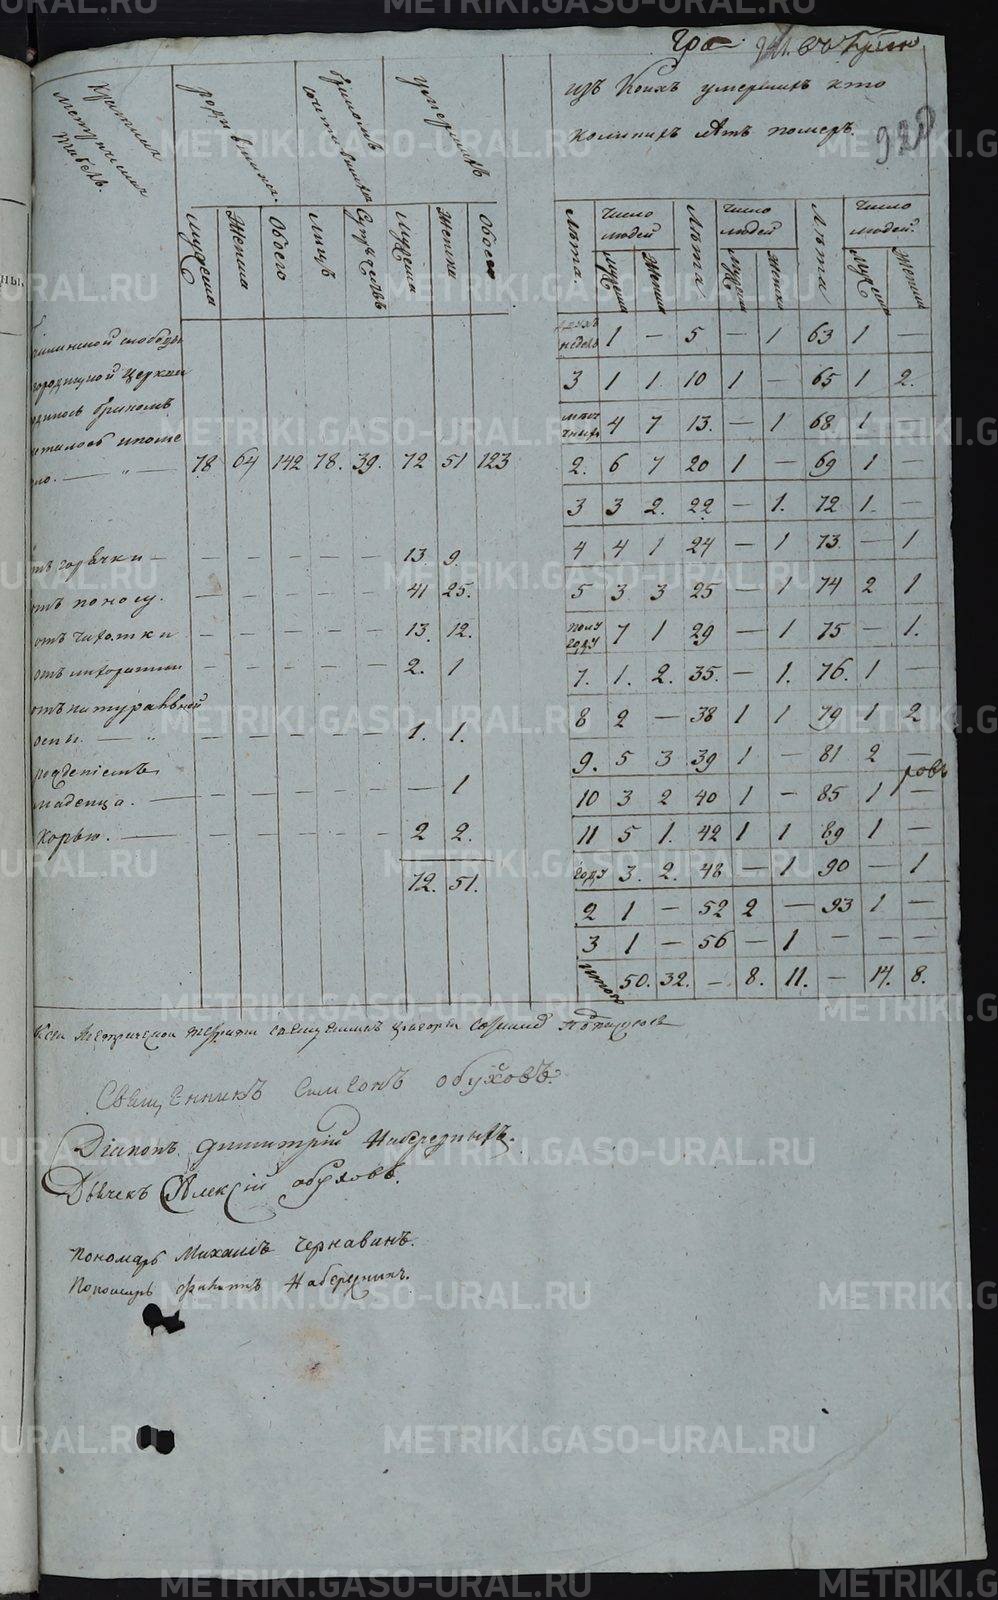 METRIKI.GASO-URAL.RU
941.
920
Краткая
метрическая
табель.
родившихся.
бракомъ
сочетавшихся
умершихъ
мужеска
Женска
Обоего
Лицъ
Супружествъ
мужеска
Женска
Обоего
слободы
Церкви
бракомъ
78. 64 142 78. 39. 72 51 123
отъ горячки — — — — — — 13. 9.
отъ поносу. — — — — — 41 25.
отъ чихотки — — — — — 13. 12.
отъ лихоратки — — — — — 2. 1
отъ натуральной
оспы. — — — — — — 1. 1.
младенца. — — — — — — — 1
Корью. — — — — — — 2 2.
72. 51.
изъ Коихъ умершихъ кто
коликихъ лѣтъ померъ.
Лѣта. Число людей Лѣта Число людей Лѣта Число людей.
мужеска Женска мужеска Женска мужеска Женска
недель 1 — 5 — 1 63 1 —
3 1 1 10 1 — 65 1 2.
4 7 13. — 1 68 1
2. 6 7 20 1 — 69 1
3 3 2. 22 — 1. 72 1. —
4 4 1 24 — 1 73. — 1
5 3 3 25 — 1 74 2 1
полу году 7 1 29 — 1 75 — 1.
7. 1. 2. 35. — 1. 76. 1 —
8 2 — 38 1 1 79 1 2
9. 5 3 39 1 — 81 2 —
10 3 2 40 1 — 85 1 —
11 5 1. 42 1 1 89 1 —
году 3. 2. 48 — 1 90 — 1
2 1 — 52 2 — 93 1 —
3 1 — 56 — 1 — — —
итого 50. 32. — 8. 11. — 14. 8.
Священникъ Симеонъ Обуховъ.
Діаконъ Димитрій Набережныхъ.
Дьячекъ Алексій Обуховъ.
Пономарь Михаилъ Чернавинъ.
Пономарь Набережныхъ.